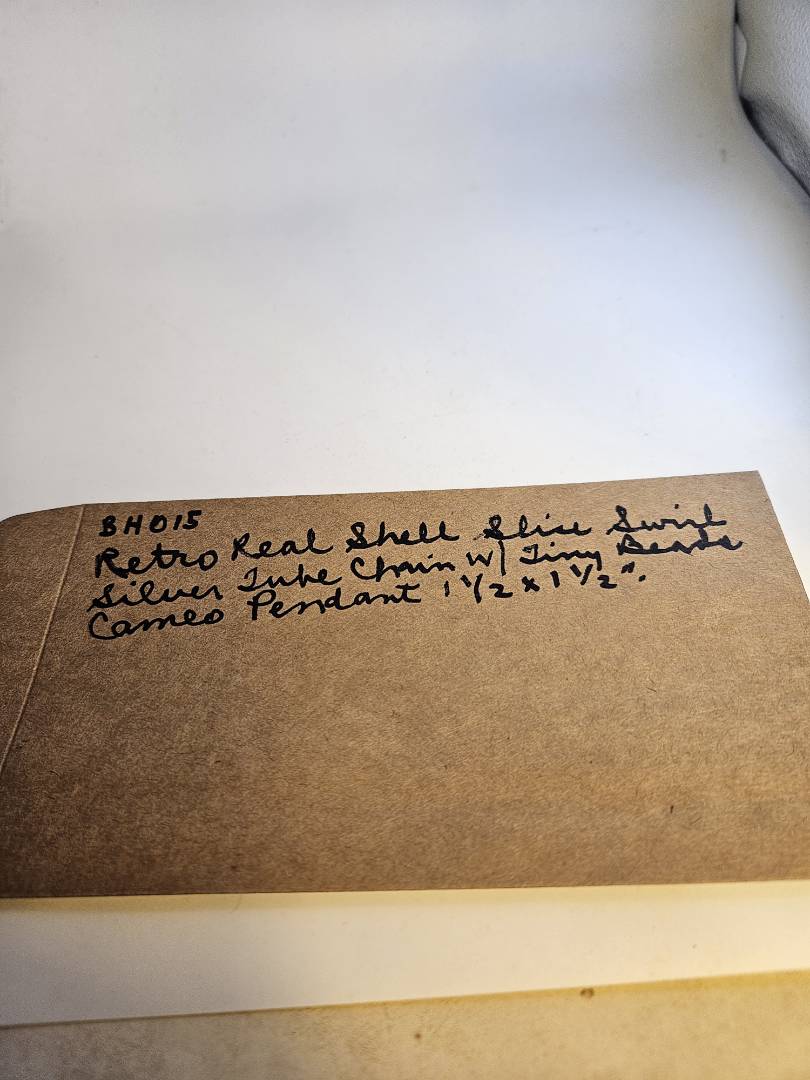 BH015
Retro Real Shell Slice Swirl
Silver Tube Chain w/ Tiny Beads
Cameo Pendant 1 1/2 x 1 1/2".